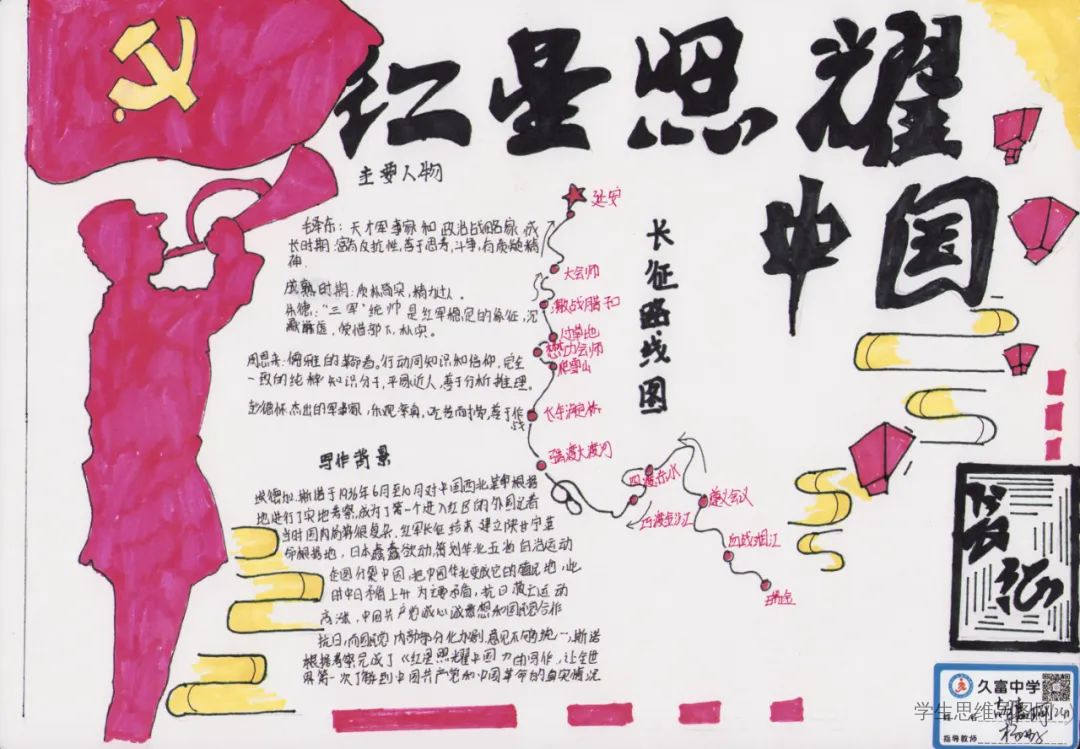 红星照耀
中国
主要人物
毛泽东：天才军事家和政治战略家，成
长时期：富有反抗性，善于思考，斗争，有质疑精
神．
成熟时期：质朴简实，精力过人．
朱德："三军"统帅是红军稳定的象征，沉
藏谦逊，爱惜部下，朴实．
周恩来：儒雅的革命者。行动同知识和信仰，完全
一致的纯粹知识分子，平易近人，善于分析推理。
彭德怀：杰出的军事家，乐观，吃苦而耐劳，善于作
战
延安
大会师
激战腊子口
过草地
懋功会师
爬雪山
飞夺泸定桥
强渡大渡河
四渡赤水
巧渡金沙江
遵义会议
血战湘江
瑞金
长征路线图
写作背景
埃德加．斯诺于1936年6月至10月对中国西北革命根据
地进行了实地考察，成为了第一个进入红区的外国记者
当时国内局势很复杂，红军长征结束建立陕甘宁革
命根据地，日本蠢蠢欲动，策划华北五省自治运动
企图分裂中国，把中国华北变成它的殖民地，此
时中日矛盾上升为主要矛盾，抗日救亡运动
高涨，中国共产党诚心诚意想和国民党合作
抗日，而国民党内部分化，意见不统一，斯诺
根据考察完成了《红星照耀中国》的写作，让全世
界第一次了解到中国共产党和中国革命的真实情况
长征
久富中学
学生思维导图网
姓名
指导教师